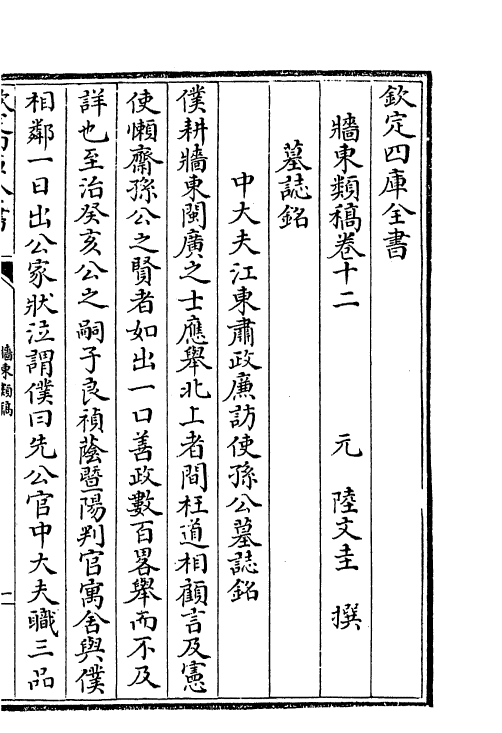 欽定四庫全書
牆東類稿卷十二
元 陸文圭 撰
墓誌銘
中大夫江東肅政廉訪使孫公墓誌銘
僕耕牆東閩廣之士應舉北上者間枉道相顧言及憲
使懶齋孫公之賢者如出一口善政數百畧舉而不及
詳也至治癸亥公之嗣子良禎蔭暨陽判官寓舍與僕
相鄰一日出公家狀泣謂僕曰先公官中大夫職三品
欽定四庫全書
牆東類稿
一